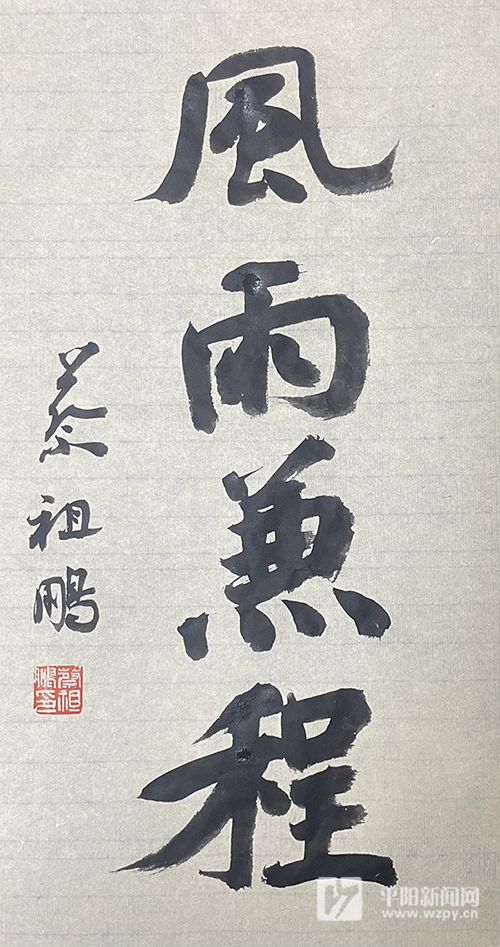 風雨兼程
蔡祖鵬
蔡祖鵬印
平阳新闻网
www.wzpy.cn